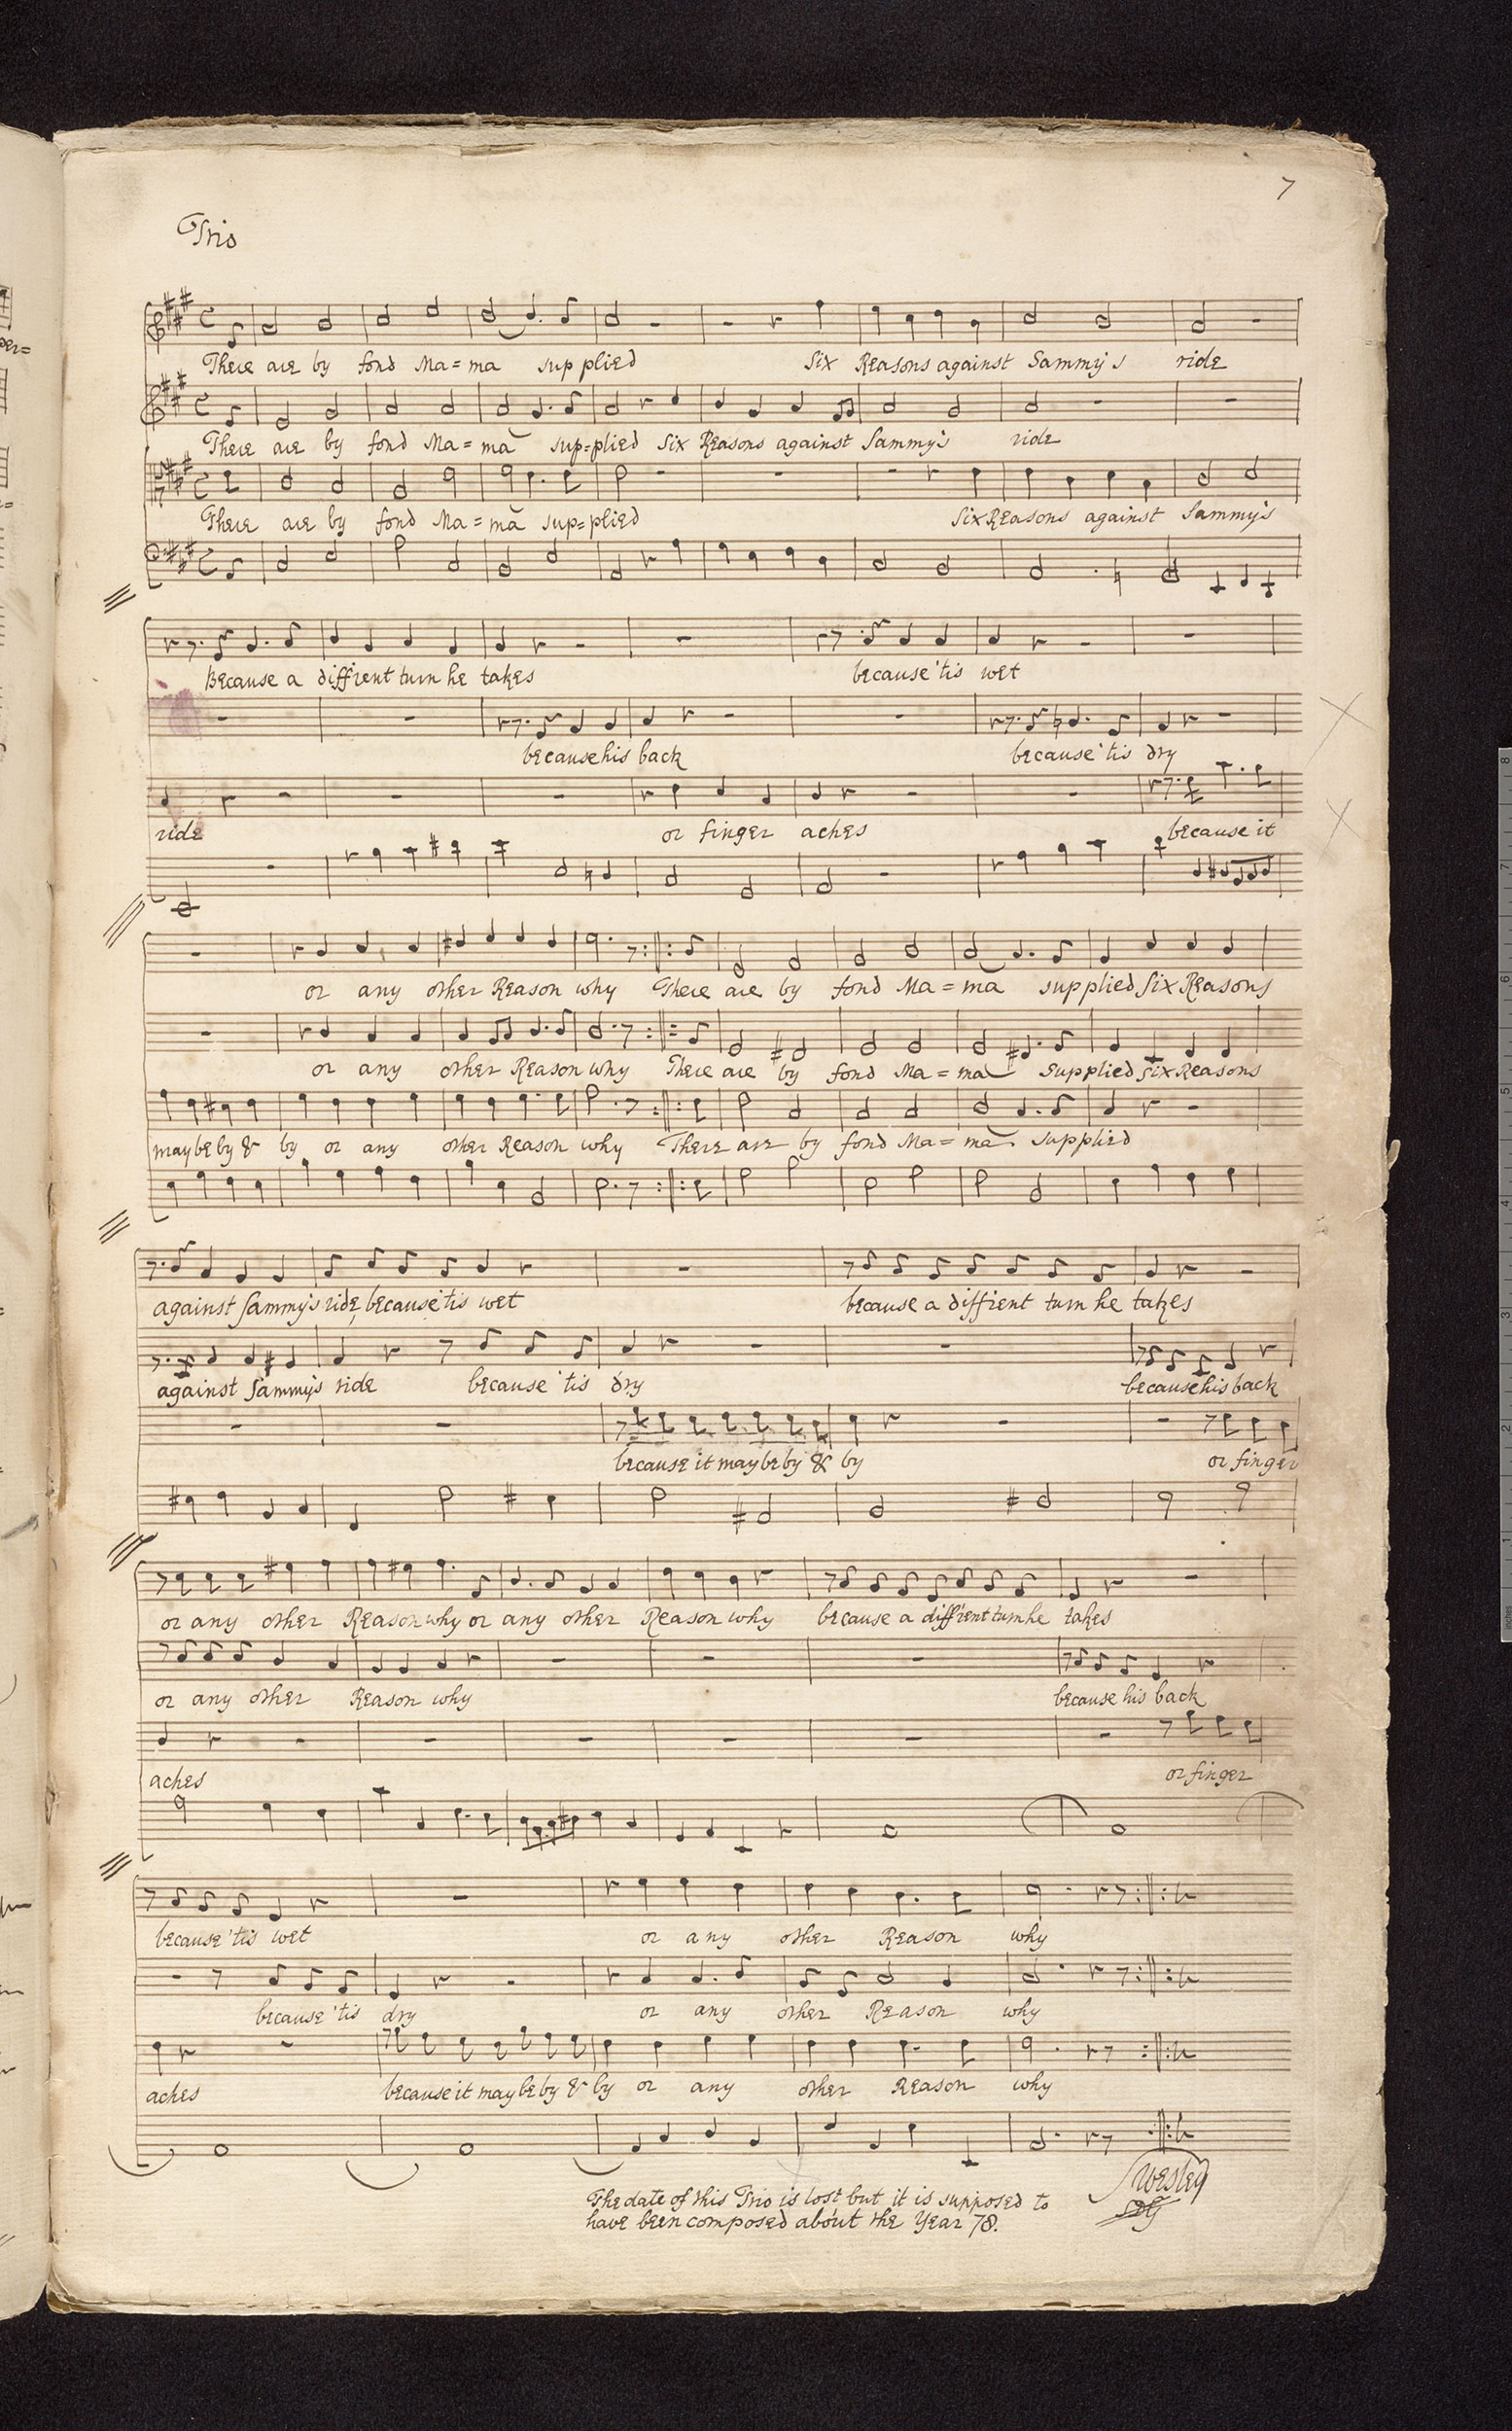 7
Trio
There are by fond Ma=ma sup plied Six Reasons against Sammy's ride
There are by fond Ma=ma sup=plied Six Reasons against Sammy's ride
There are by fond Ma=ma sup=plied Six Reasons against Sammy's
Because a diffrent turn he takes because 'tis wet
because his back because 'tis dry
ride or finger aches because it
or any other Reason why There are by fond Ma=ma supplied Six Reasons
or any other Reason why There are by fond Ma=ma supplied Six Reasons
may be by & by or any other Reason why There are by fond Ma=ma supplied
against Sammy's ride, because 'tis wet because a diffrent turn he takes
against Sammy's ride because 'tis dry because his back
because it may be by & by or finger
or any other Reason why or any other Reason why because a diff'rent turn he takes
or any other Reason why because his back
aches or finger
because 'tis wet or any other Reason why
because 'tis dry or any other Reason why
aches because it may be by & by or any other Reason why
The date of this Trio is lost but it is supposed to
have been composed about the Year 78.
SWesley